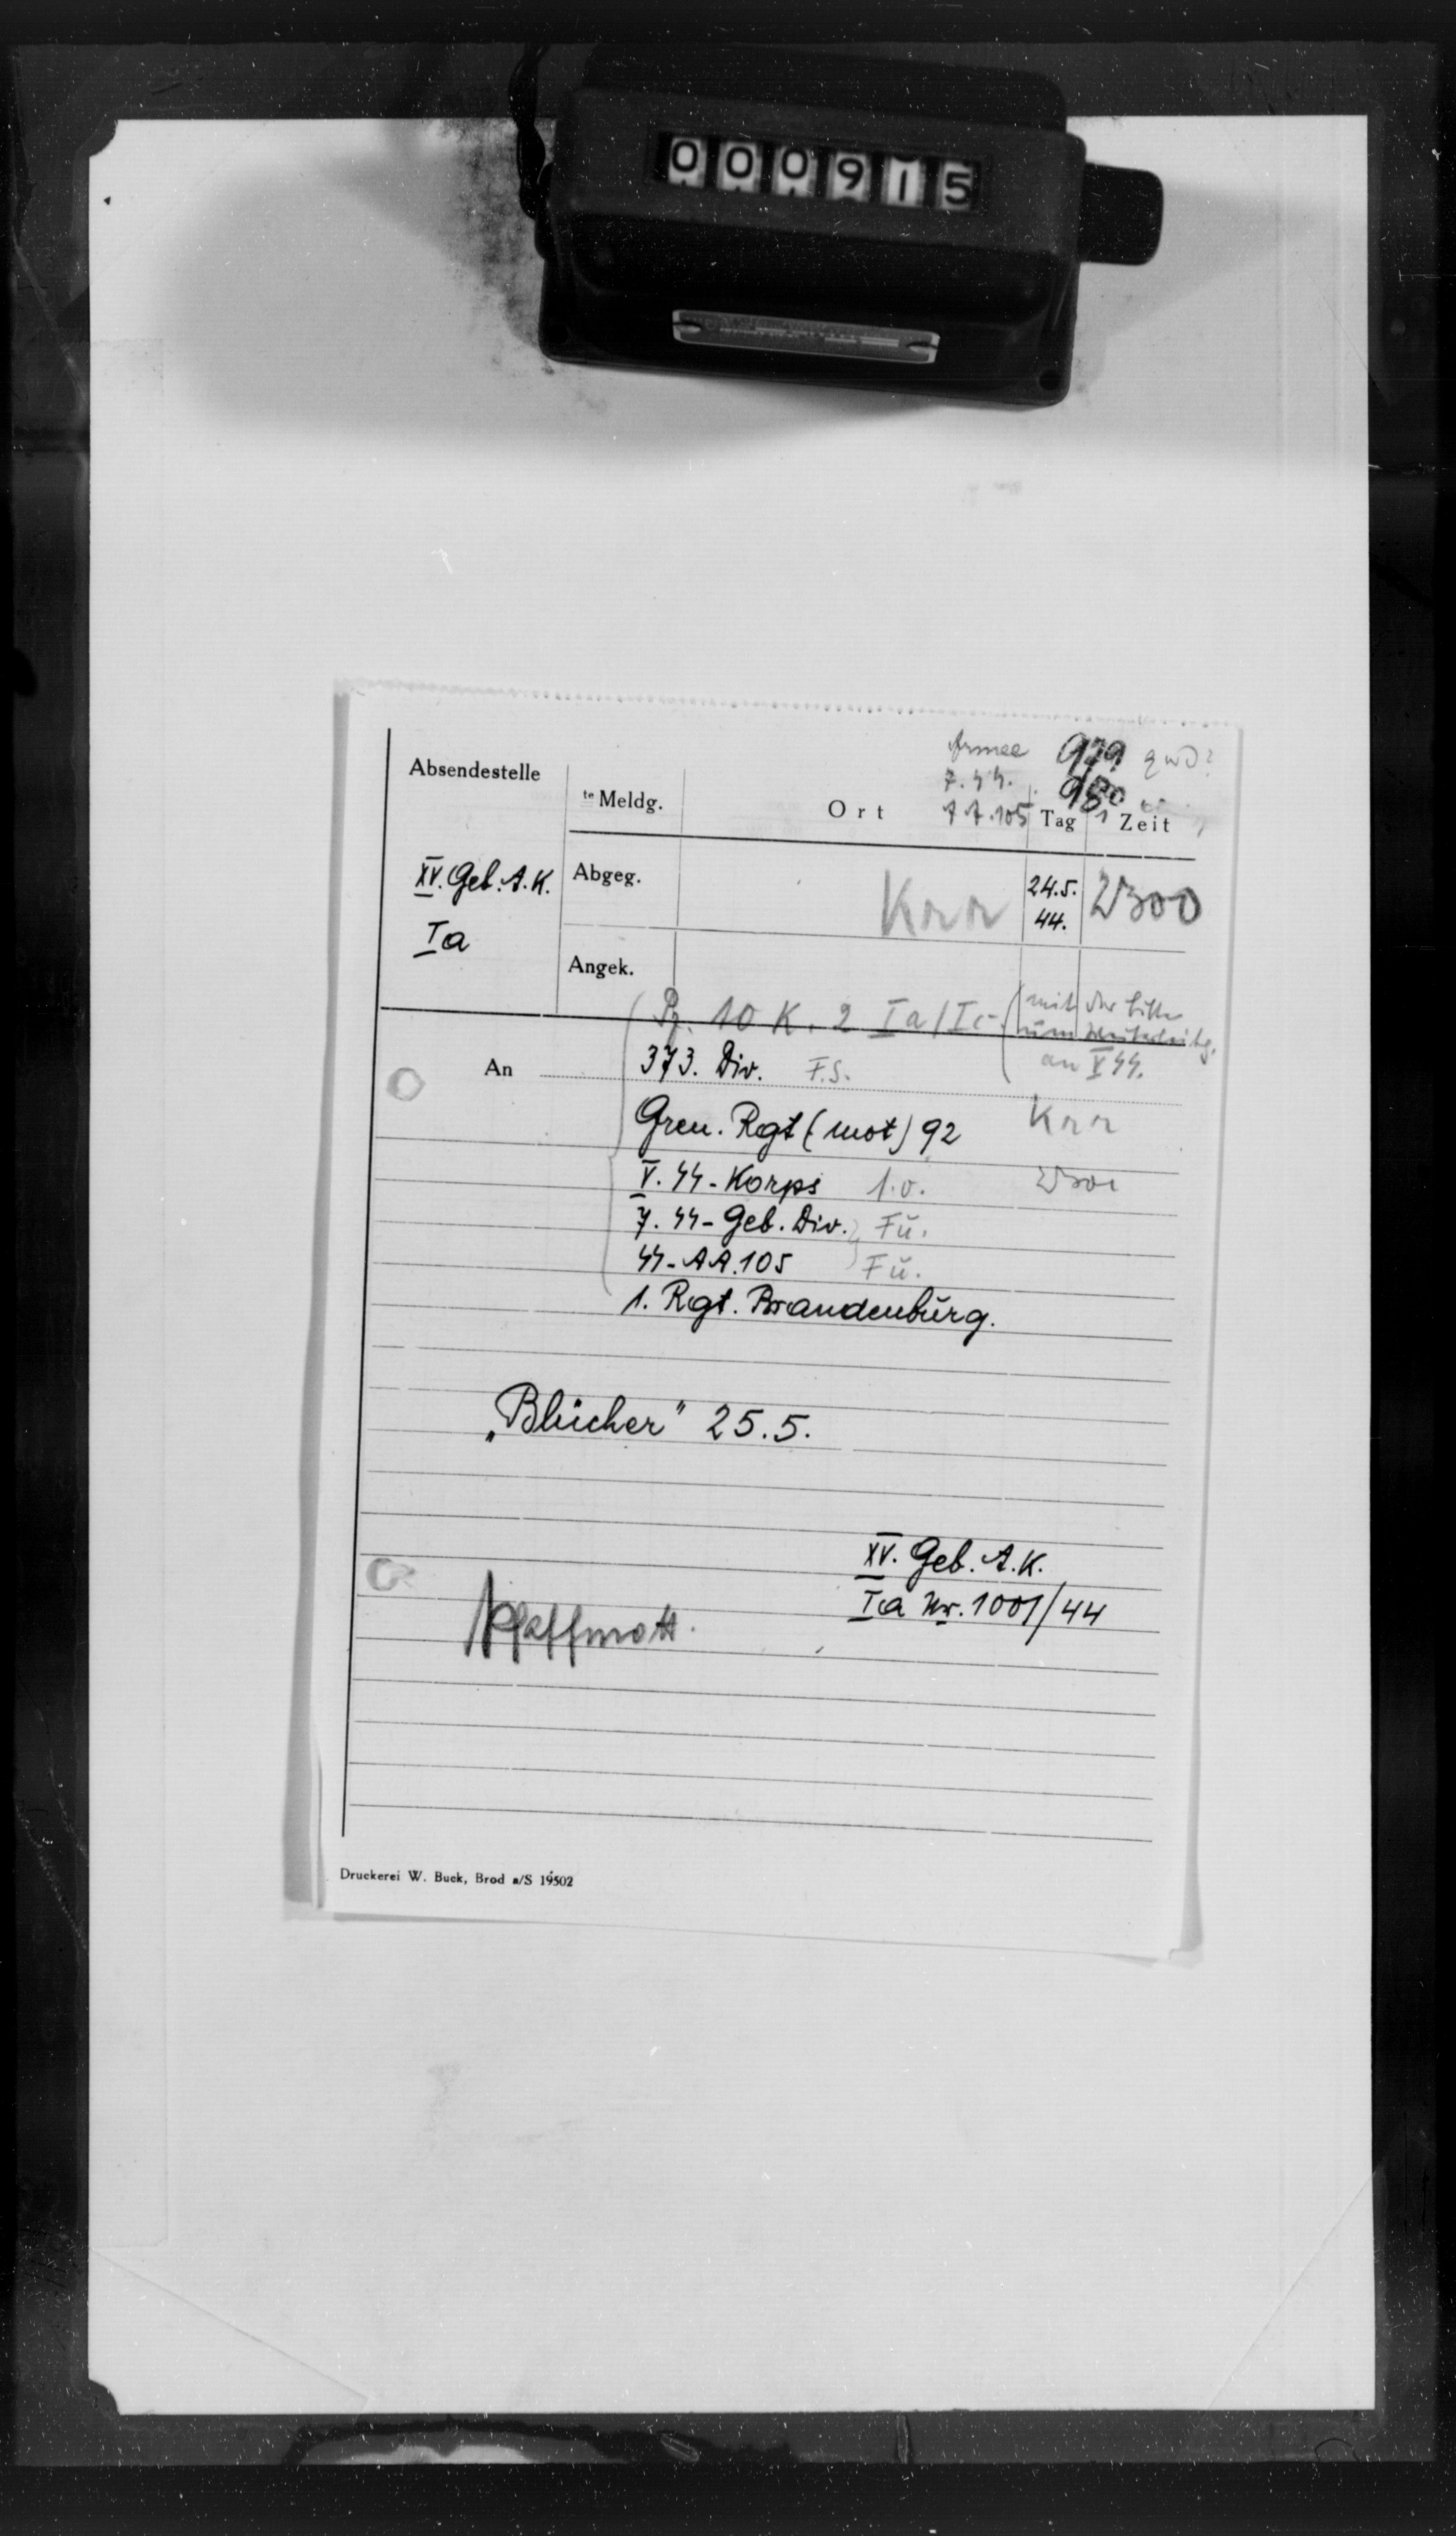 000915
Armee 979
7. SS. 980
Absendestelle
te Meldg. Ort 7 7. 105 Tag Zeit
XV. Geb. A. K. Abgeg. 24.5. 2300
Ia 44.
Angek.
Pz. 10 K. 2 Ia/Ic (mit der Bitte
um Weiterleitg.
An 373. Div. F.S. an V SS.
Gren. Regt (mot) 92
V. SS-Korps 1.0.
7. SS-Geb. Div. Fü.
SS-AA. 105 Fü.
1. Rgt. Brandenburg.
„Blücher" 25.5.
XV. Geb. A. K.
Ia Nr. 1001/44
Druckerei W. Buck, Brod a/S 19502